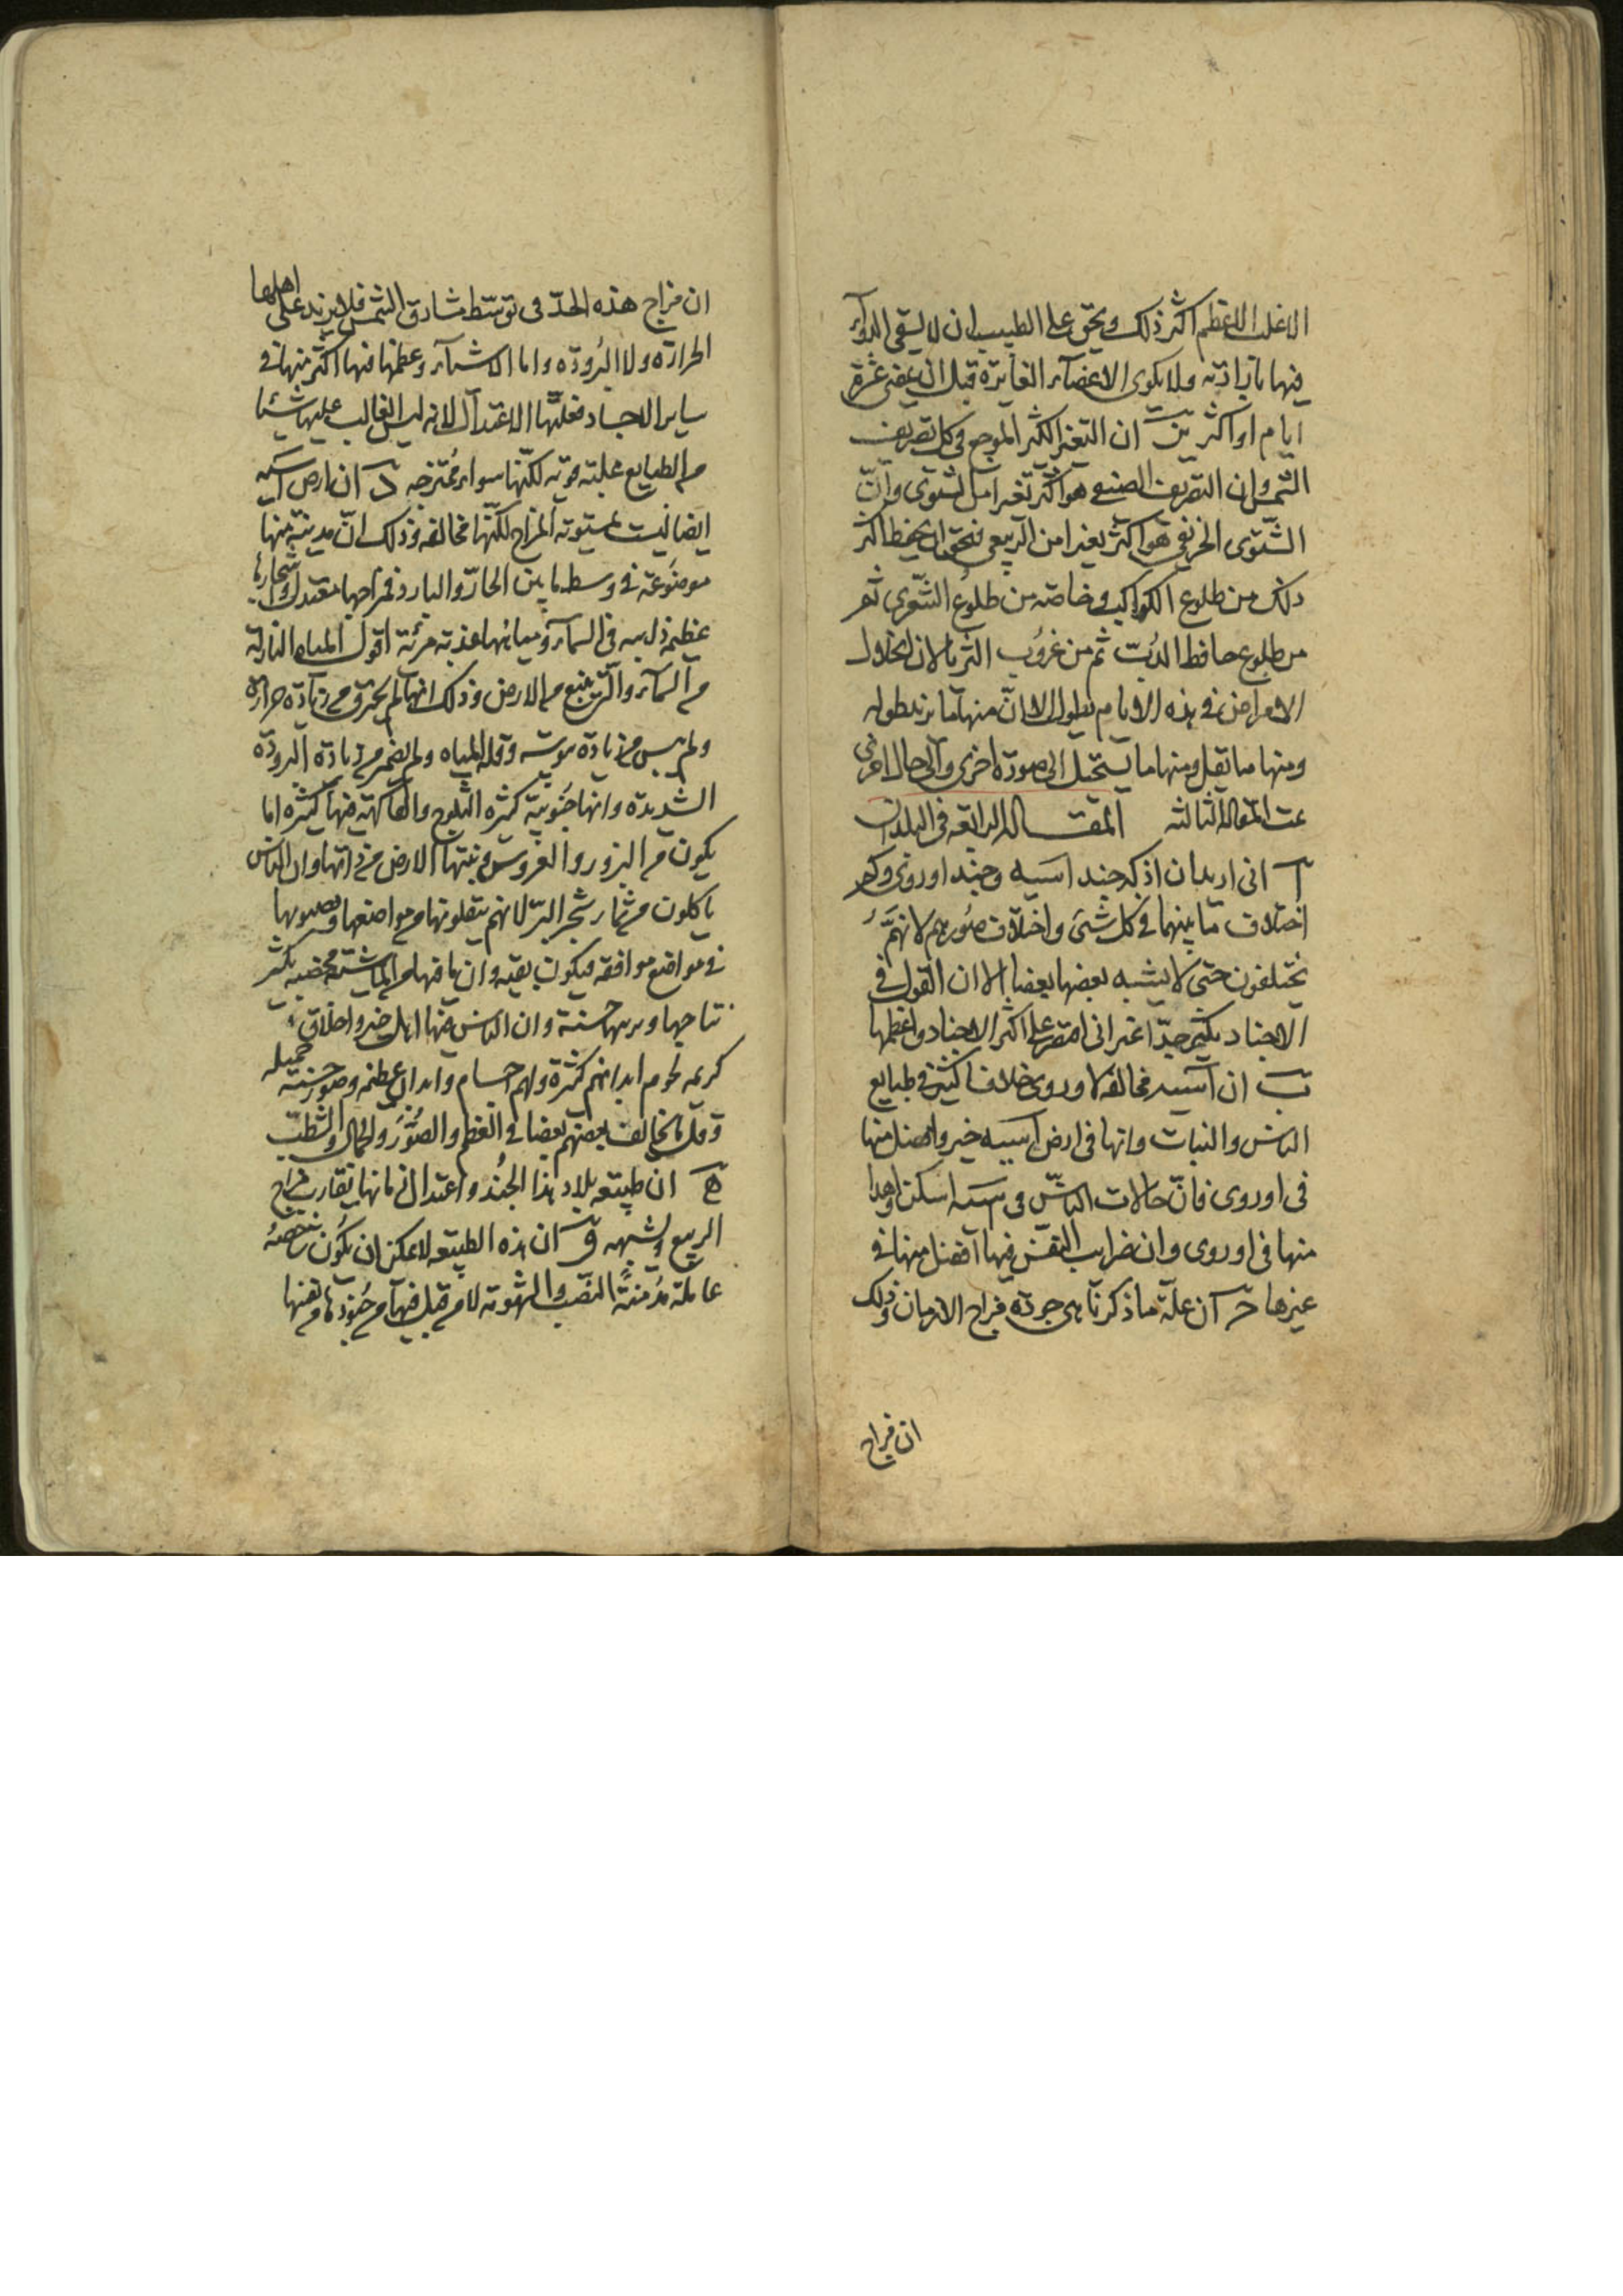 الاغلب الاعظم اكثر ذلك ويحق على الطبيب ان لا يسقى الدوآء
فيها بارادته ولا يكوى الاعضآء الغايرة قبل ان يمضى عشرة
ايام او اكثر ان التغير الكثير الموجع فى كل تصريف
الشمس وان التصريف الصيفى هو اكثر تغيرا من الشتوى وانّ
الشتوى الخريفى هو اكثر تغيرا من الربيعى فيحق ان يحفظ اكثر
ذلك من طلوع الكواكب وخاصة من طلوع الشعرى ثم
من طلوع حافظ الدُب ثم من غروب الثريا لان انحلال
الامراض فى هذه الايام يطول الا انّ منها ما يزيد طوله
ومنها ما يقل ومنها ما يستحيل الى صورة اخرى والى حال اخرى
تمت المقالة الثالثة المقالة الرابعة فى البلدان
آ انى اريد ان اذكر جند اسيه وجند اوروفى وكم
اختلاف ما بينهما فى كل شئ واختلاف صُورهم لانهمَ
يختلفون حتى لا يشبه بعضها بعضا الا ان القول فى
الاجناد يكثر جدّا غير انى اقتصر على اكثر الاجناد واعظمها
ب ان آسيه مخالفة لاوروى خلافا كثيرا فى طبايع
الناس والنبات وانها فى ارض اسيه خير وافضل منها
فى اوروى فانّ حالات الناسّ فى اسيه اسكن واهدا
منها فى اوروى وان ضرايب النفس فيها افضل منها فى
غيرها حـ آن علّة ما ذكرنا هى جودة مزاج الازمان وذلك
ان مزاج
ان مزاج هذه الحدّ فى توسّط مشارق الشمس فلا يزيد على اهلها
الحرارة ولا البُرودة واما الاشيآء وعظمها فيها اكثر منها فى
ساير الاجساد فعلّتها الاعتدال لانه ليس الغالب عليها شيئا
من الطبايع غلبة قوية لكنّها سوآء ممتزجه د ان ارض آسيه
ايضا ليست مستوية المزاج لكنّها مخالفه وذلك انّ مدينة منها
موضوعة فى وسط ما بين الحارّ والبارد فمزاجها معتدل واشجارها
عظيمة ذاهبه فى السمآء ومياهها عذبة مرئة اقول المياه النازلة
من السمآء والتى تنبع من الارض وذلك انها لم تحترق من زيادة حرارة
ولم تيبس من زيادة يبوسة وقلة المياه ولم تضمر من زيادة البرودة
الشديدة وانها جنوبية كثيره الثلوج والفاكهة فيها كثيره اما
يكون من البزور والغروس وتنبتها الارض من ذاتها وان الناس
ياكلون من ثمار شجر البرّ لانهم ينقلونها من مواضعها وينصبونها
فى مواضع موافقة فيكون نقيه وان ما فيها من الماشية مخصبه يكثر
نتاجها وتربيتها حسنة وان الناس فيها اهل خير واخلاق
كريمه لحوم ابدانهم كثيرة ولهم اجسام وابدان عظيمة وصور حسنة جميله
وقل ما يخالف بعضهم بعضا فى العظم والصُوَر والجمال والشطب
هـ ان طبيعة بلاد هذا الجُند واعتدال ازمانها يقارب مزاج
الربيع وشبهه و ان هذه الطبيعه لا يمكن ان يكون شجيعة
عاملة مُدمنةً النصب والشهوية لا من قبل فيها من جُنودها من بعضها